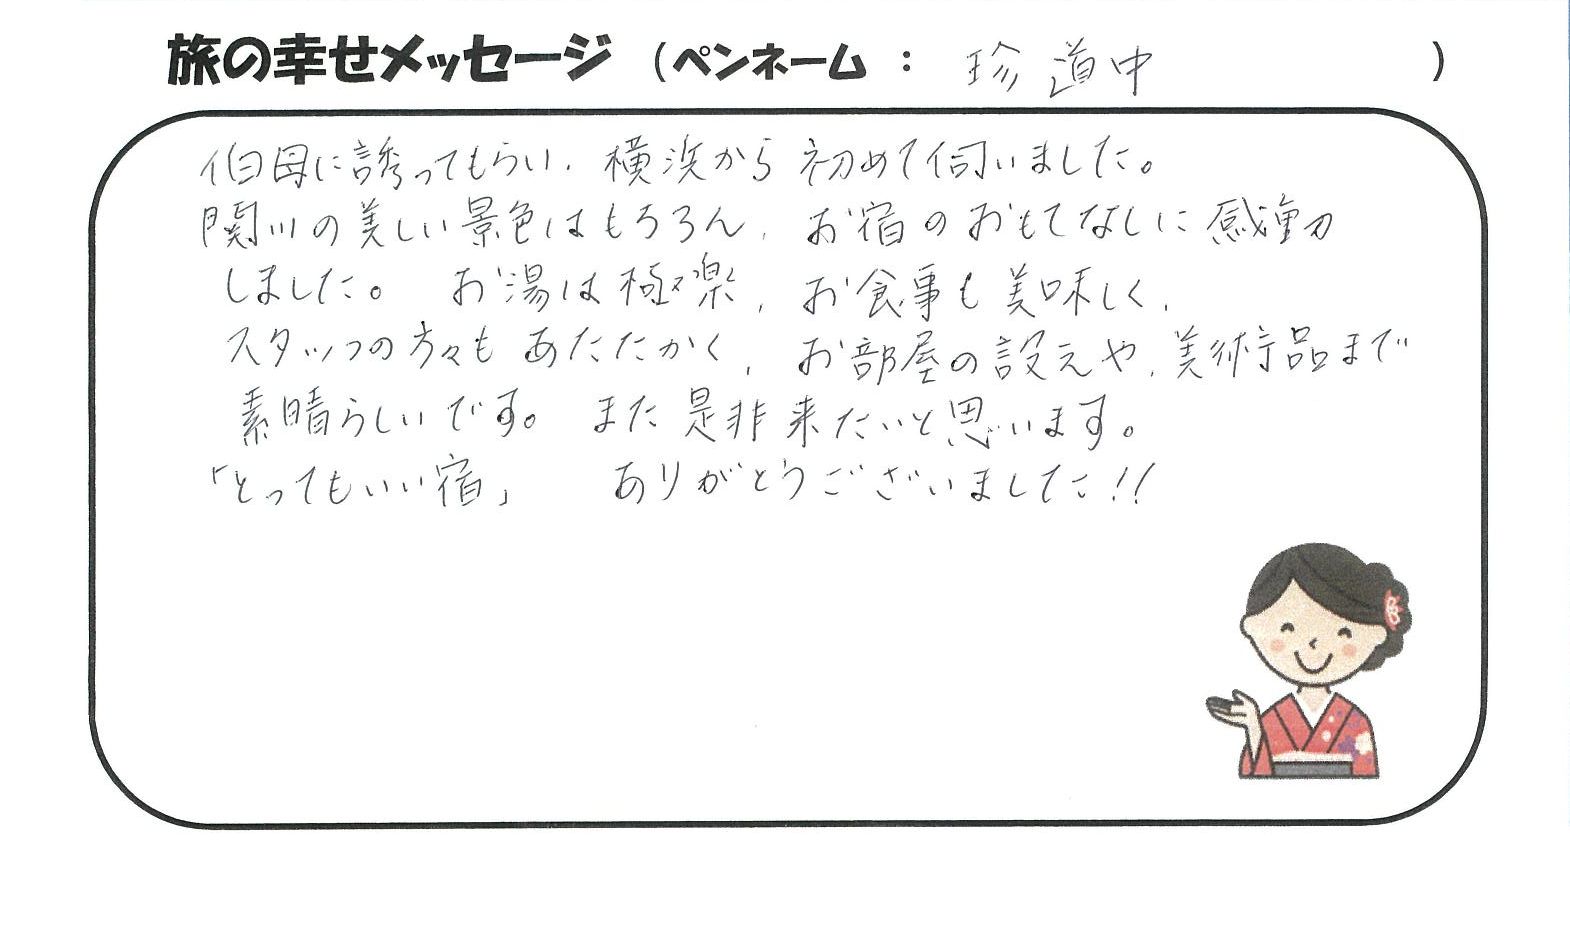 旅の幸せメッセージ (ペンネーム : 珍道中 )
伯母に誘ってもらい、横浜から初めて伺いました。
関川の美しい景色はもちろん、お宿のおもてなしに感動
しました。 お湯は極楽、お食事も美味しく、
スタッフの方々もあたたかく、お部屋の設えや、美術品まで
素晴らしいです。 また是非来たいと思います。
「とってもいい宿」 ありがとうございました!!